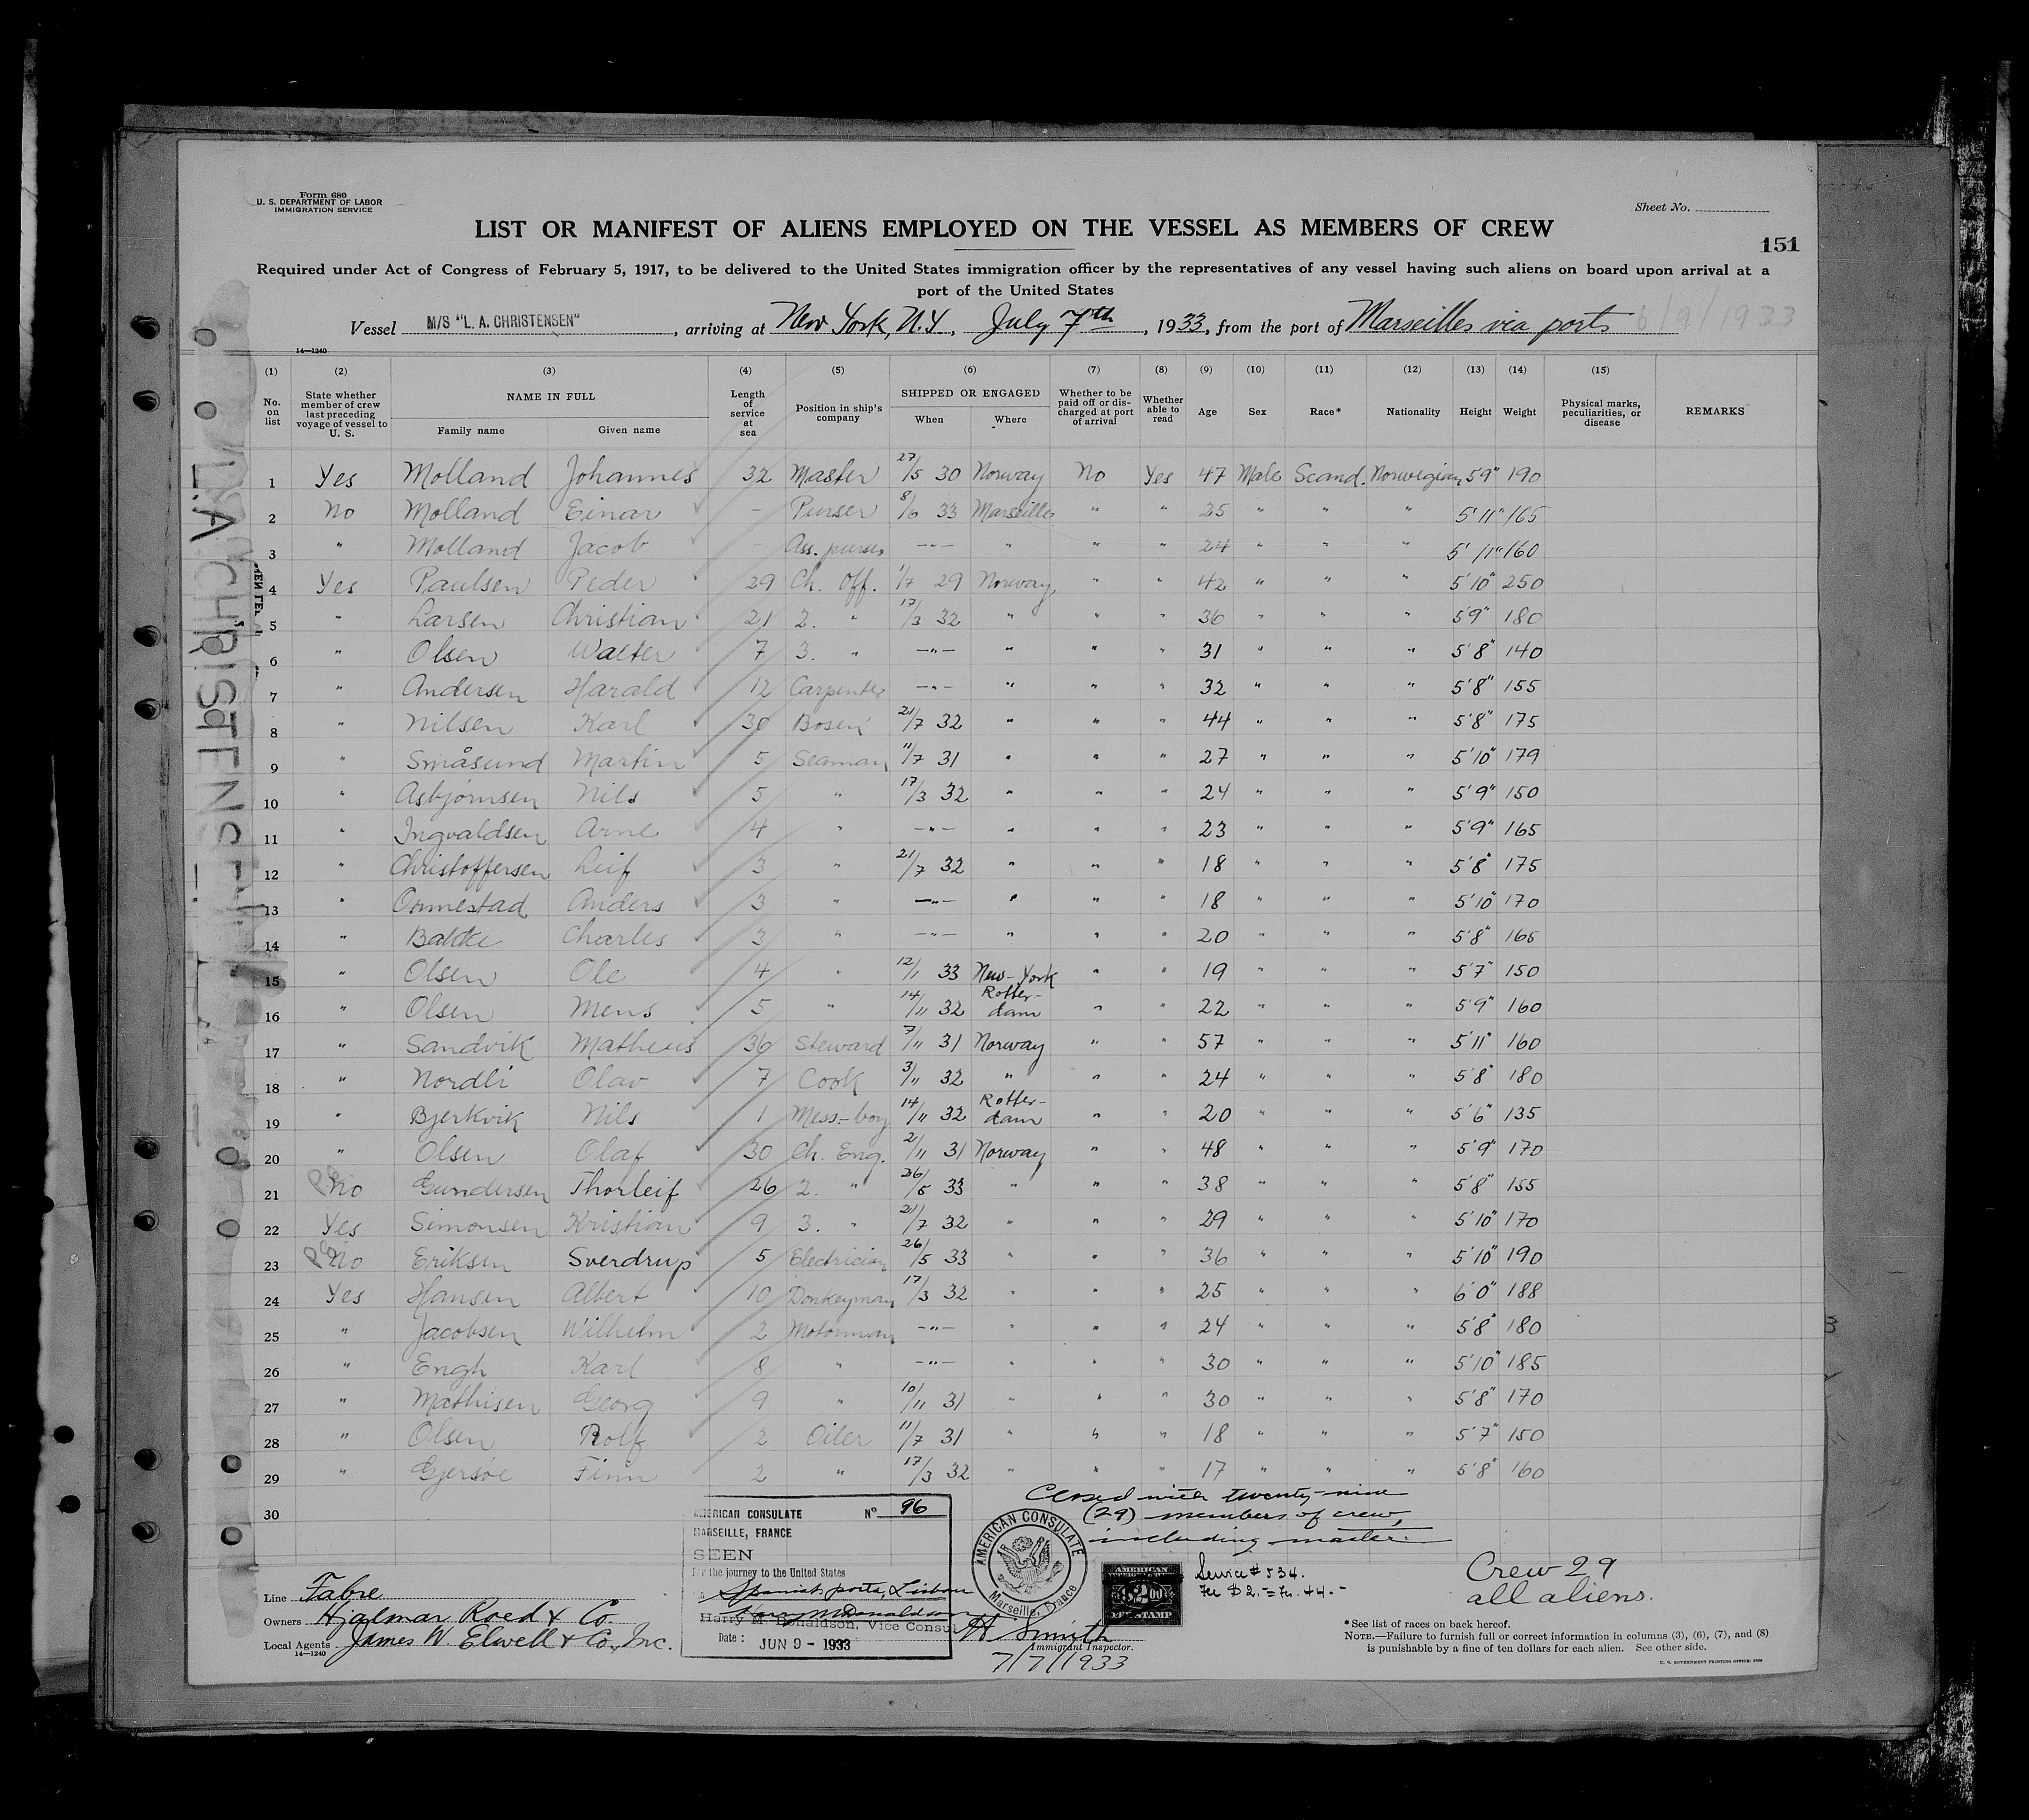 Form 680
U. S. DEPARTMENT OF LABOR
IMMIGRATION SERVICE
Sheet No.
LIST OR MANIFEST OF ALIENS EMPLOYED ON THE VESSEL AS MEMBERS OF CREW
151
Required under Act of Congress of February 5, 1917, to be delivered to the United States immigration officer by the representatives of any vessel having such aliens on board upon arrival at a
port of the United States
Vessel M/S "L. A. CHRISTENSEN", arriving at New York, N.Y., July 7th, 1933, from the port of Marseilles via ports 6/9/1933
14—1240
(1) (2) (3) (4) (5) (6) (7) (8) (9) (10) (11) (12) (13) (14) (15)
No. on list State whether member of crew last preceding voyage of vessel to U. S. NAME IN FULL Family name Given name Length of service at sea Position in ship's company SHIPPED OR ENGAGED When Where Whether to be paid off or discharged at port of arrival Whether able to read Age Sex Race* Nationality Height Weight Physical marks, peculiarities, or disease REMARKS
1 Yes Molland Johannes 32 Master 27/5 30 Norway No Yes 47 Male Scand. Norwegian 5'9" 190
2 No Molland Einar - Purser 8/6 33 Marseille " " 25 " " " 5'11" 165
3 " Molland Jacob - Ass. purser -"- " " " 24 " " " 5'11" 160
4 Yes Paulsen Peder 29 Ch. Off. 1/7 29 Norway " " 42 " " " 5'10" 250
5 " Larsen Christian 21 2. " 17/3 32 " " " 36 " " " 5'9" 180
6 " Olsen Walter 7 3. " -"- " " " 31 " " " 5'8" 140
7 " Andersen Harald 12 Carpenter -"- " " " 32 " " " 5'8" 155
8 " Nilsen Karl 30 Bosen' 21/7 32 " " " 44 " " " 5'8" 175
9 " Småsund Martin 5 Seaman 11/7 31 " " " 27 " " " 5'10" 179
10 " Asbjørnsen Nils 5 " 17/3 32 " " " 24 " " " 5'9" 150
11 " Ingvaldsen Arne 4 " -"- " " " 23 " " " 5'9" 165
12 " Christoffersen Leif 3 " 21/7 32 " " " 18 " " " 5'8" 175
13 " Ormestad Anders 3 " -"- " " " 18 " " " 5'10" 170
14 " Bakke Charles 3 " -"- " " " 20 " " " 5'8" 165
15 " Olsen Ole 4 " 12/1 33 New-York " " 19 " " " 5'7" 150
16 " Olsen Mens 5 " 14/11 32 Rotter-dam " " 22 " " " 5'9" 160
17 " Sandvik Matheus 36 Steward 7/11 31 Norway " " 57 " " " 5'11" 160
18 " Nordli Olav 7 Cook 3/11 32 " " " 24 " " " 5'8" 180
19 " Bjerkvik Nils 1 Mess-boy 14/11 32 Rotter-dam " " 20 " " " 5'6" 135
20 " Olsen Olaf 30 Ch. Eng. 2/11 31 Norway " " 48 " " " 5'9" 170
21 No Gundersen Thorleif 26 2. " 26/5 33 " " " 38 " " " 5'8" 155
22 Yes Simonsen Kristian 9 3. " 21/7 32 " " " 29 " " " 5'10" 170
23 No Eriksen Sverdrup 5 Electrician 26/5 33 " " " 36 " " " 5'10" 190
24 Yes Hansen Albert 10 Donkeyman 17/3 32 " " " 25 " " " 6'0" 188
25 " Jacobsen Wilhelm 2 Motorman -"- " " " 24 " " " 5'8" 180
26 " Engh Karl 8 " -"- " " " 30 " " " 5'10" 185
27 " Mathisen Georg 9 " 10/11 31 " " " 30 " " " 5'8" 170
28 " Olsen Rolf 2 Oiler 11/7 31 " " " 18 " " " 5'7" 150
29 " Gjersøe Finn 2 " 17/3 32 " " " 17 " " " 5'8" 160
30
L.A. CHRISTENSEN
Closed with twenty-nine
(29) members of crew,
including master.
AMERICAN CONSULATE No 96
MARSEILLE, FRANCE
SEEN
For the journey to the United States
Spanish ports, Lisbon
Harry M. Donaldson
Harry M. Donaldson, Vice Consul
Date: JUN 9 - 1933
AMERICAN CONSULATE
Marseille, France
AMERICAN
$2.00
FEE STAMP
Service # 534.
Fee $2.- = Fr. 44.-
Crew 29
all aliens.
H Smith
Immigrant Inspector.
7/7/1933
Line Fabre
Owners Hjalmar Roed & Co.
Local Agents James W. Elwell & Co., Inc.
14—1240
*See list of races on back hereof.
NOTE.—Failure to furnish full or correct information in columns (3), (6), (7), and (8)
is punishable by a fine of ten dollars for each alien. See other side.